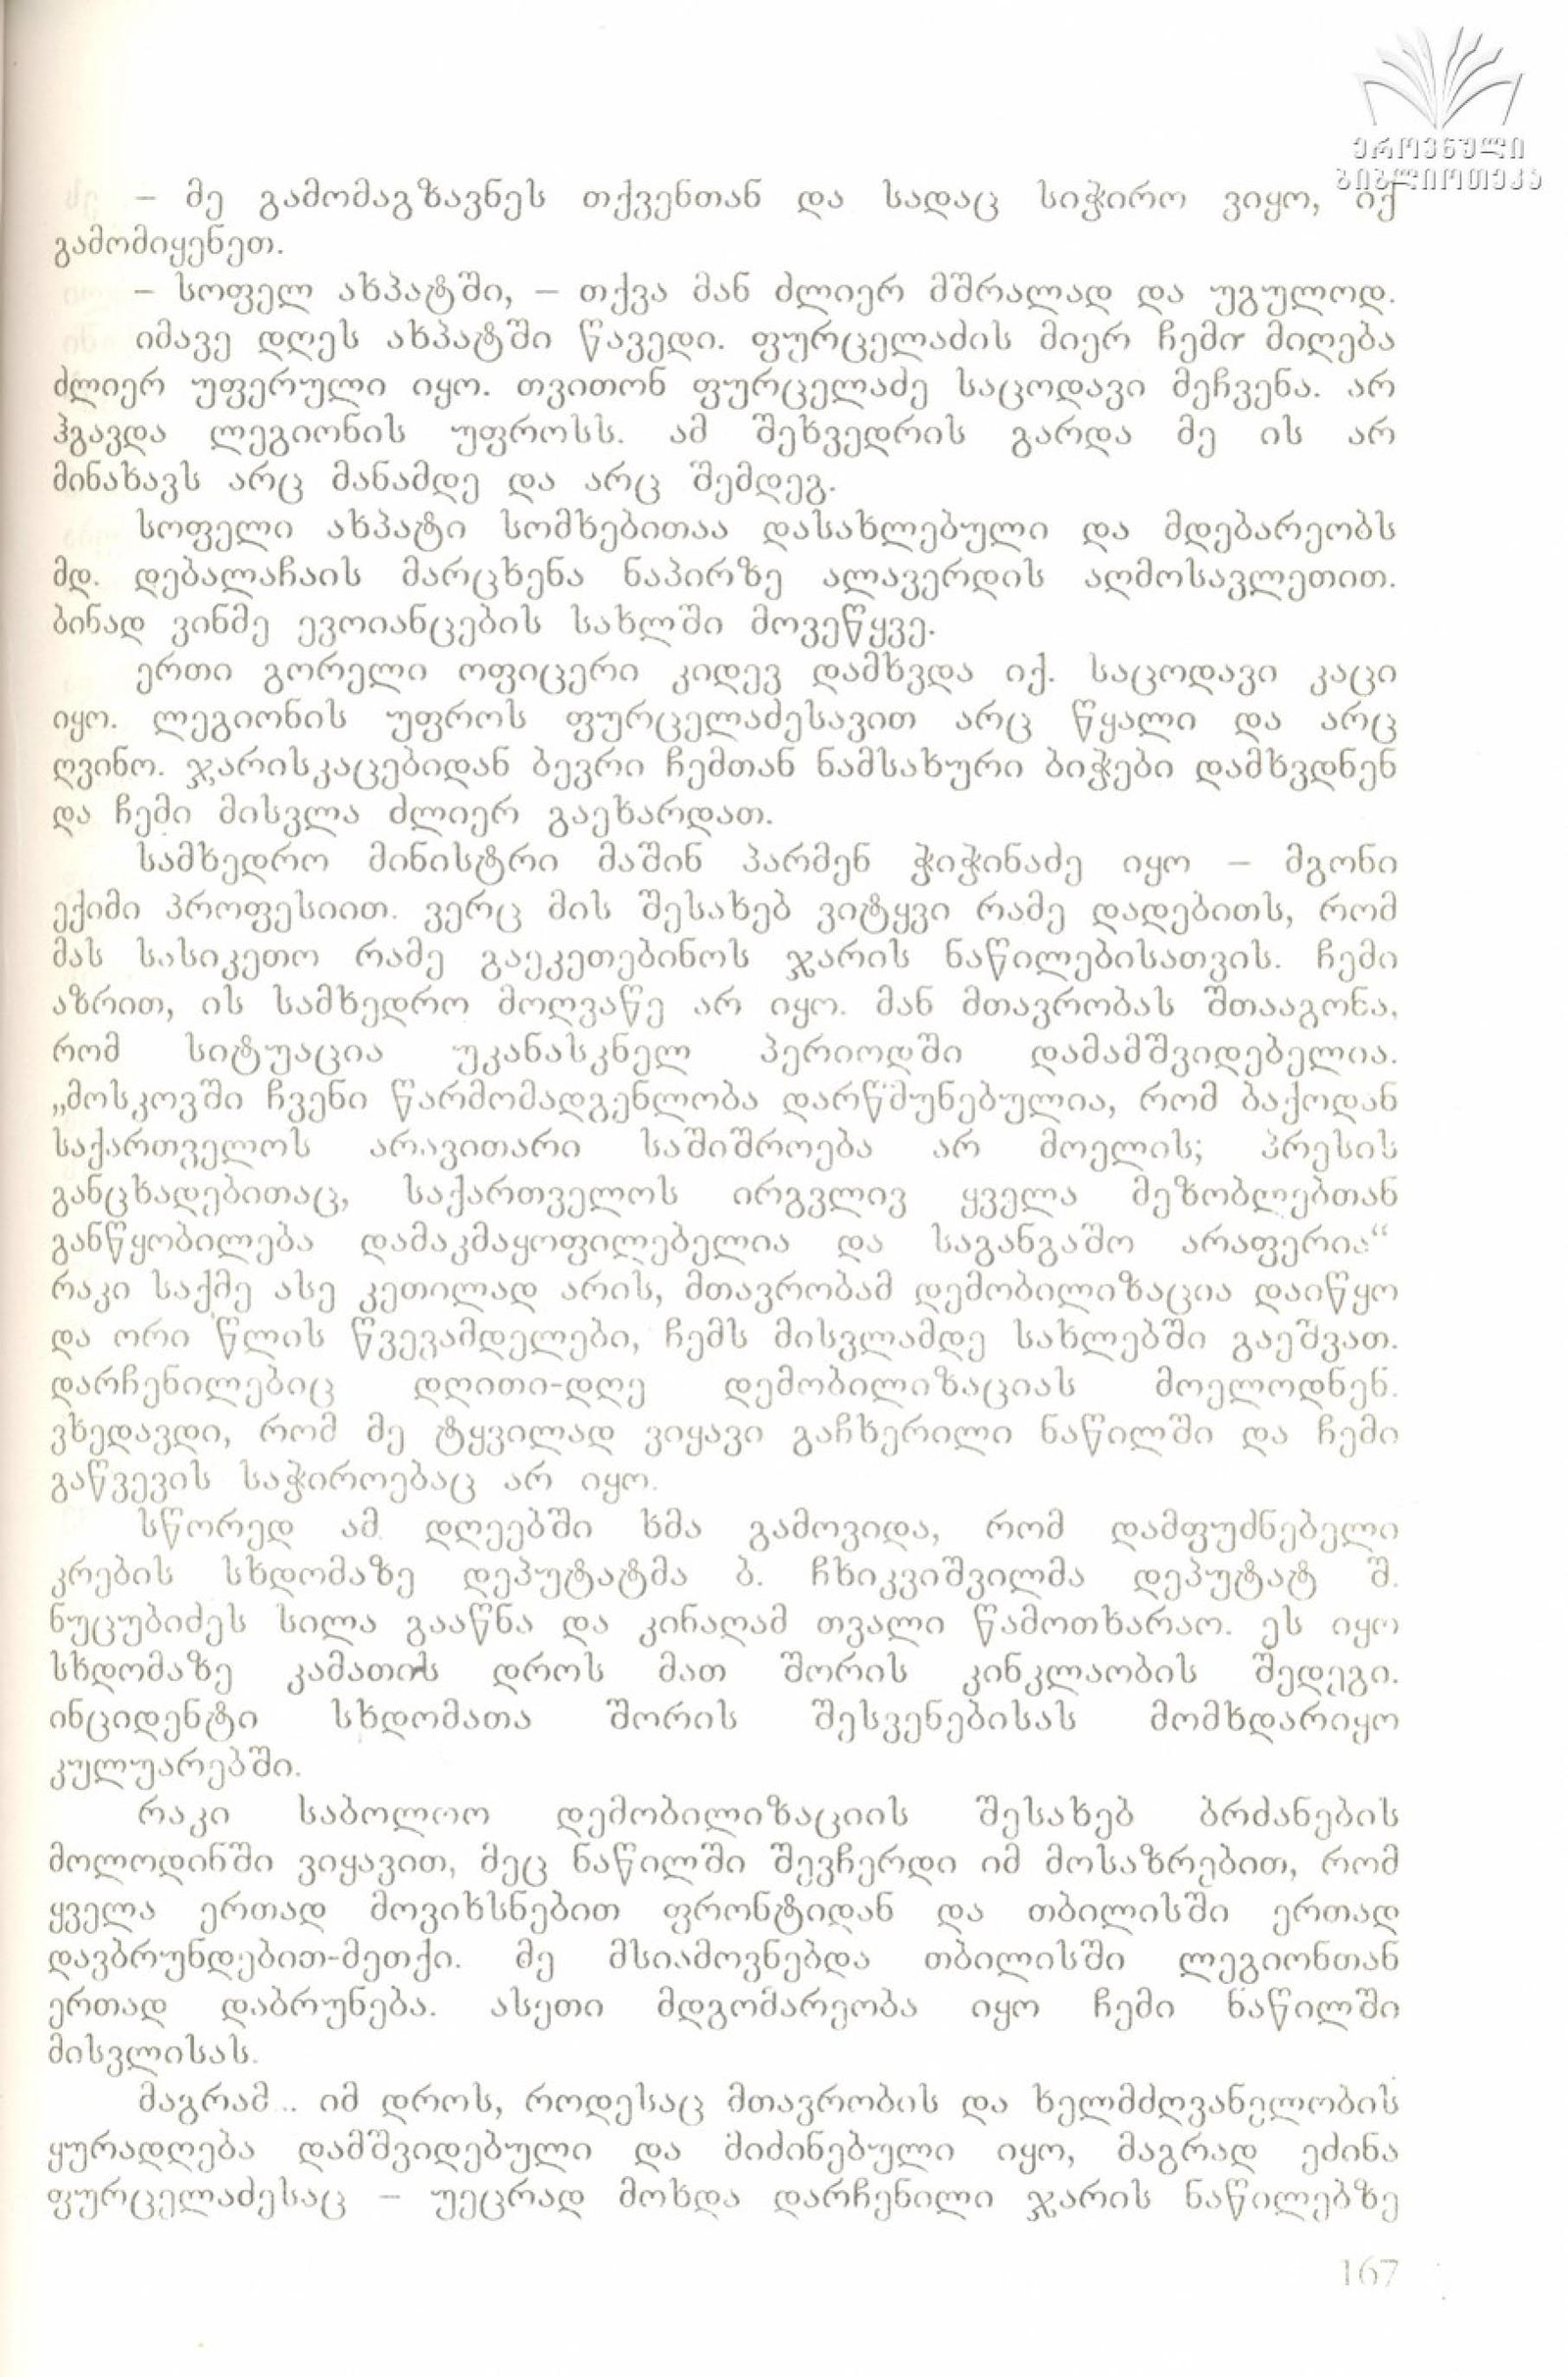 ეროვნული
ბიბლიოთეკა
– მე გამომაგზავნეს თქვენთან და სადაც სიჭირო ვიყო, იქ
გამომიყენეთ.
– სოფელ ახპატში, – თქვა მან ძლიერ მშრალად და უგულოდ.
იმავე დღეს ახპატში წავედი. ფურცელაძის მიერ ჩემი მიღება
ძლიერ უფერული იყო. თვითონ ფურცელაძე საცოდავი მეჩვენა. არ
ჰგავდა ლეგიონის უფროსს. ამ შეხვედრის გარდა მე ის არ
მინახავს არც მანამდე და არც შემდეგ.
სოფელი ახპატი სომხებითაა დასახლებული და მდებარეობს
მდ. დებალაჩაის მარცხენა ნაპირზე ალავერდის აღმოსავლეთით.
ბინად ვინმე ევოიანცების სახლში მოვეწყვე.
ერთი გორელი ოფიცერი კიდევ დამხვდა იქ. საცოდავი კაცი
იყო. ლეგიონის უფროს ფურცელაძესავით არც წყალი და არც
ღვინო. ჯარისკაცებიდან ბევრი ჩემთან ნამსახური ბიჭები დამხვდნენ
და ჩემი მისვლა ძლიერ გაეხარდათ.
სამხედრო მინისტრი მაშინ პარმენ ჭიჭინაძე იყო – მგონი
ექიმი პროფესიით. ვერც მის შესახებ ვიტყვი რამე დადებითს, რომ
მას სასიკეთო რამე გაეკეთებინოს ჯარის ნაწილებისათვის. ჩემი
აზრით, ის სამხედრო მოღვაწე არ იყო. მან მთავრობას შთააგონა,
რომ სიტუაცია უკანასკნელ პერიოდში დამამშვიდებელია.
„მოსკოვში ჩვენი წარმომადგენლობა დარწმუნებულია, რომ ბაქოდან
საქართველოს არავითარი საშიშროება არ მოელის; პრესის
განცხადებითაც, საქართველოს ირგვლივ ყველა მეზობლებთან
განწყობილება დამაკმაყოფილებელია და საგანგაშო არაფერია“
რაკი საქმე ასე კეთილად არის, მთავრობამ დემობილიზაცია დაიწყო
და ორი წლის წვევამდელები, ჩემს მისვლამდე სახლებში გაეშვათ.
დარჩენილებიც დღითი-დღე დემობილიზაციას მოელოდნენ.
ვხედავდი, რომ მე ტყვილად ვიყავი გაჩხერილი ნაწილში და ჩემი
გაწვევის საჭიროებაც არ იყო.
სწორედ ამ დღეებში ხმა გამოვიდა, რომ დამფუძნებელი
კრების სხდომაზე დეპუტატმა ბ. ჩხიკვიშვილმა დეპუტატ შ.
ნუცუბიძეს სილა გააწნა და კინაღამ თვალი წამოთხარაო. ეს იყო
სხდომაზე კამათის დროს მათ შორის კინკლაობის შედეგი.
ინციდენტი სხდომათა შორის შესვენებისას მომხდარიყო
კულუარებში.
რაკი საბოლოო დემობილიზაციის შესახებ ბრძანების
მოლოდინში ვიყავით, მეც ნაწილში შევჩერდი იმ მოსაზრებით, რომ
ყველა ერთად მოვიხსნებით ფრონტიდან და თბილისში ერთად
დავბრუნდებით-მეთქი. მე მსიამოვნებდა თბილისში ლეგიონთან
ერთად დაბრუნება. ასეთი მდგომარეობა იყო ჩემი ნაწილში
მისვლისას.
მაგრამ... იმ დროს, როდესაც მთავრობის და ხელმძღვანელობის
ყურადღება დამშვიდებული და მიძინებული იყო, მაგრად ეძინა
ფურცელაძესაც – უეცრად მოხდა დარჩენილი ჯარის ნაწილებზე
167